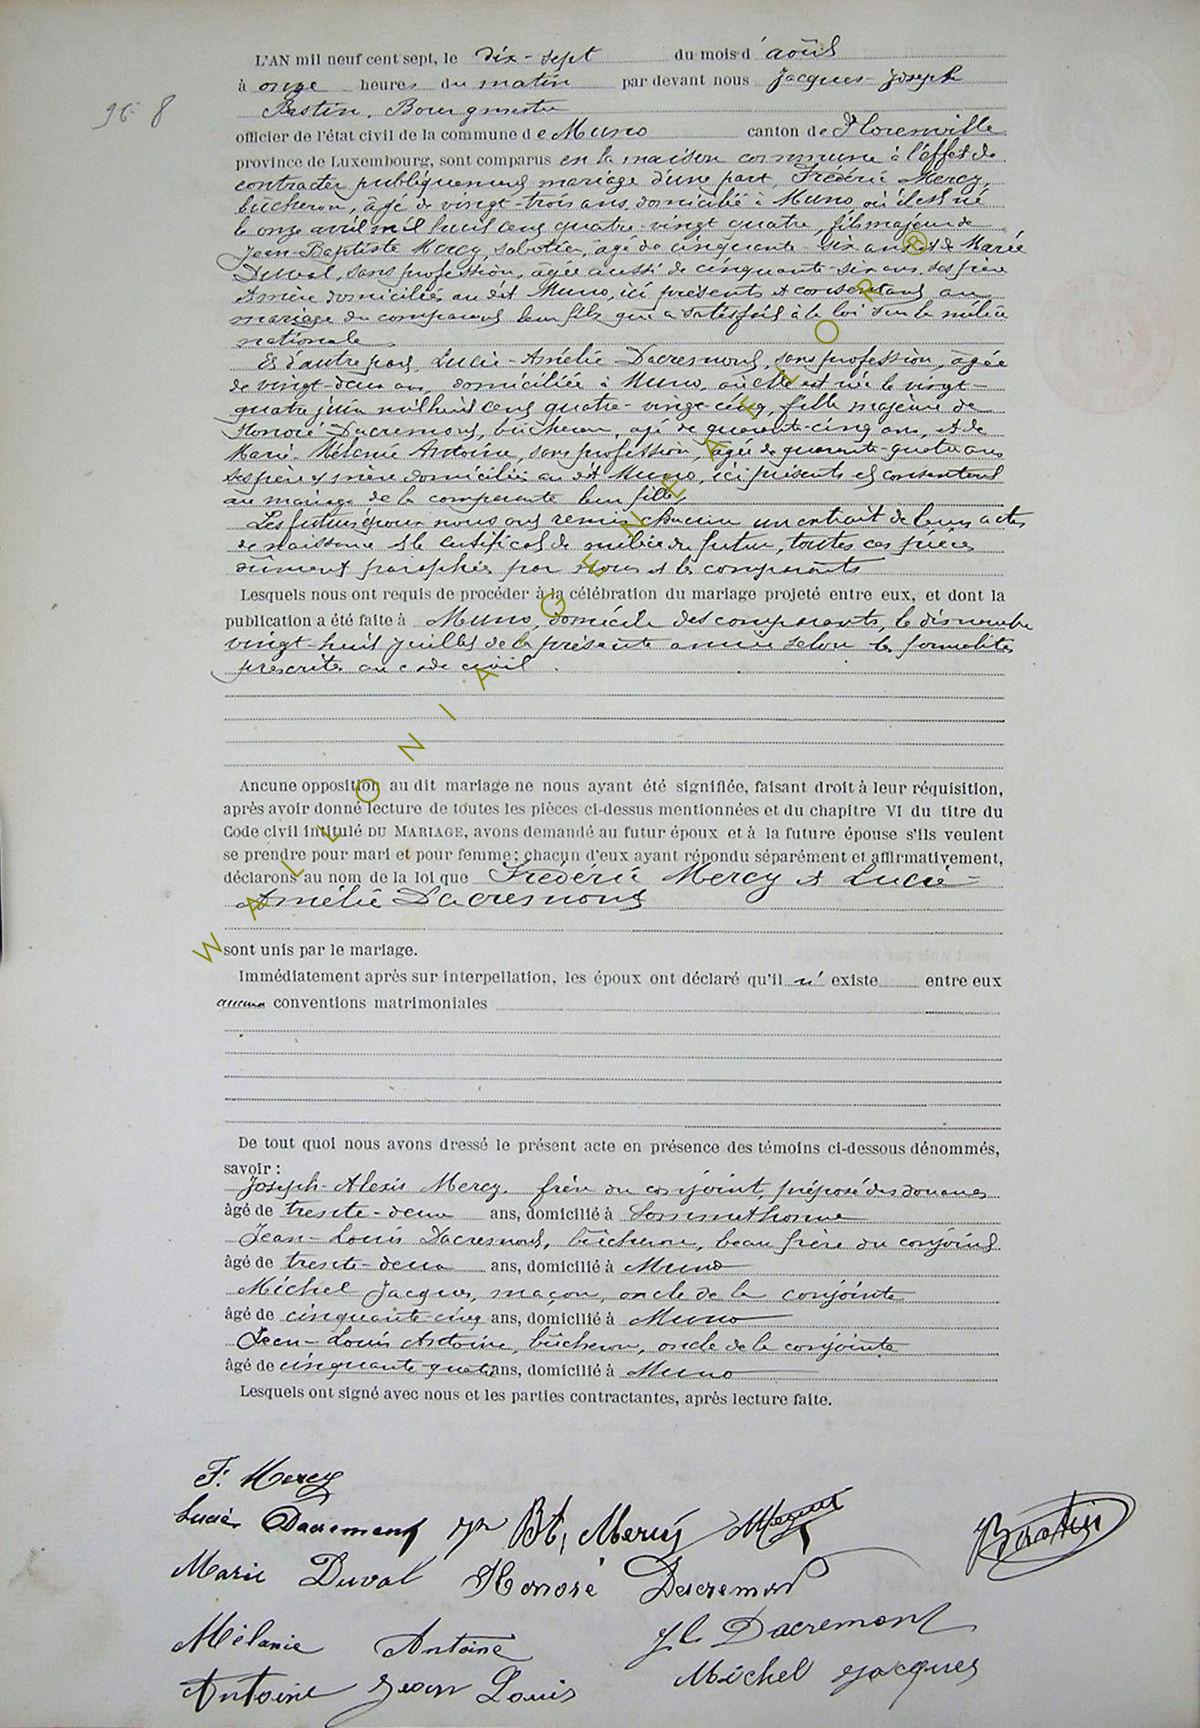 L'AN mil neuf cent sept, le dix-sept du mois d'août
à onze heures du matin par devant nous Jacques-Joseph
96-8
Bourgmestre
officier de l'état civil de la commune de Muno canton de Florenville
province de Luxembourg, sont comparus en la maison commune à l'effet de
contracter publiquement mariage d'une part, Frédéric Mercy,
bûcheron, âgé de vingt-trois ans, domicilié à Muno, où il est né
le onze avril mil huit cent quatre-vingt quatre, fils majeur de
Jean-Baptiste Mercy, sabotier, âgé de cinquante-six ans et de Marie
Duval, sans profession, agée aussi de cinquante-six ans, ses père
et mère domiciliés au dit Muno, ici présents et consentant au
mariage du comparant leur fils qui a satisfait à la loi sur la milice
nationale.
Et d'autre part, Lucie-Amélie Dacremont, sans profession, agée
de vingt-deux ans, domiciliée à Muno, où elle est née le vingt-
quatre juin mil huit cent quatre-vingt-cinq, fille majeure de
Honoré Dacremont, bûcheron, agé de quarante-cinq ans, et de
Marie-Mélanie Antoine, sans profession, agée de quarante-quatre ans
ses père et mère domiciliés au dit Muno, ici présents et consentant
au mariage de la comparante leur fille,
Les futurs époux nous ont remis chacun un extrait de leurs actes
de naissance et le certificat de milice du futur, toutes ces pièces
dûment paraphées par nous et les comparants
Lesquels nous ont requis de procéder à la célébration du mariage projeté entre eux, et dont la
publication a été faite à Muno, domicile des comparants, le dimanche
vingt-huit juillet de la présente année selon les formalités
prescrites au code civil.
Aucune opposition au dit mariage ne nous ayant été signifiée, faisant droit à leur réquisition,
après avoir donné lecture de toutes les pièces ci-dessus mentionnées et du chapitre VI du titre du
Code civil intitulé DU MARIAGE, avons demandé au futur époux et à la future épouse s'ils veulent
se prendre pour mari et pour femme; chacun d'eux ayant répondu séparément et affirmativement,
déclarons au nom de la loi que Frédéric Mercy et Lucie-
Amélie Dacremont
sont unis par le mariage.
Immédiatement après sur interpellation, les époux ont déclaré qu'il n'existe entre eux
aucune conventions matrimoniales
De tout quoi nous avons dressé le présent acte en présence des témoins ci-dessous dénommés,
savoir :
Joseph-Alexis Mercy, frère du conjoint, préposé des douanes
âgé de trente-deux ans, domicilié à Sommethonne
Jean-Louis Dacremont, bûcheron, beau frère du conjoint
âgé de trente-deux ans, domicilié à Muno
Michel Jacques, maçon, oncle de la conjointe
âgé de cinquante-cinq ans, domicilié à Muno
Jean-Louis Antoine, bûcheron, oncle de la conjointe
âgé de cinquante-quatre ans, domicilié à Muno
Lesquels ont signé avec nous et les parties contractantes, après lecture faite.
F. Mercy
Lucie Dacremont Jn Bt, Mercy
Marie Duval Honoré Dacremont
Mélanie Antoine J L Dacremont
Antoine Jean Louis Michel Jacques
WALLONIA GENEALOPR ®